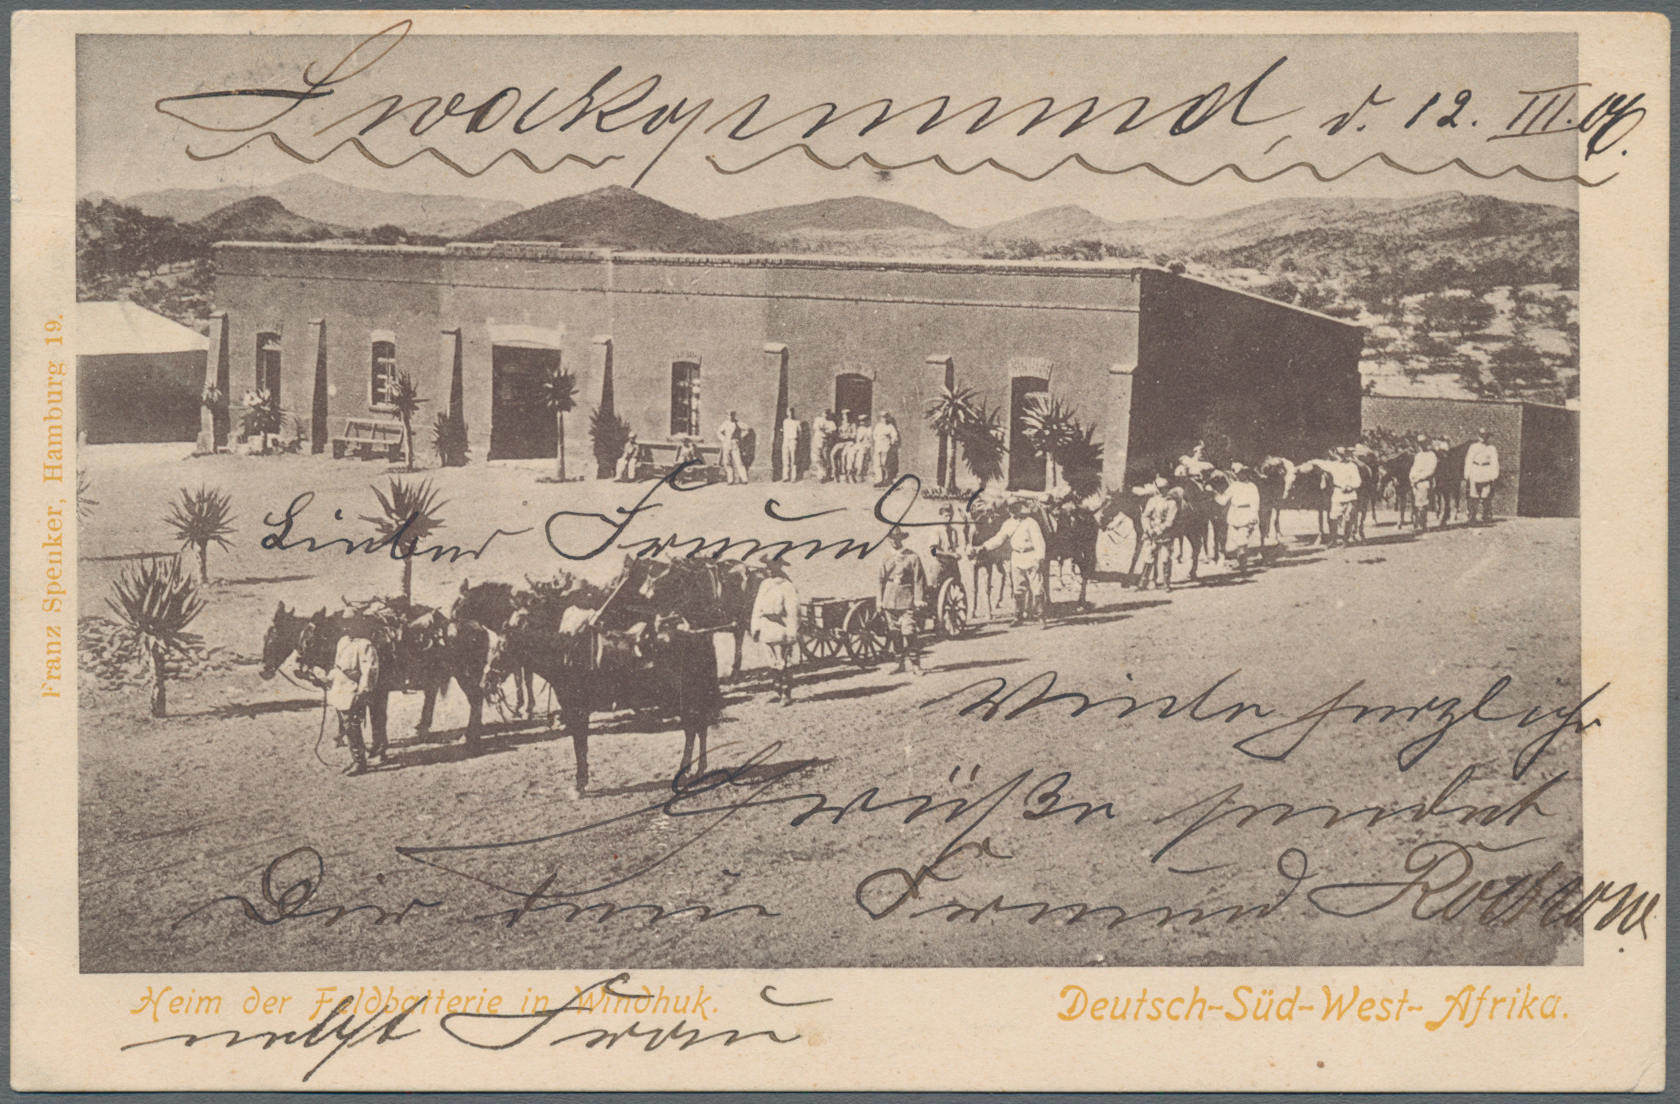 Swakopmund, d. 12. III. 04.
Lieber Freund!
Viele herzliche
Grüße sendet
Dir Dein Freund
nebst Frau
Heim der Feldbatterie in Windhuk.
Deutsch-Süd-West-Afrika.
Franz Spenker, Hamburg 19.